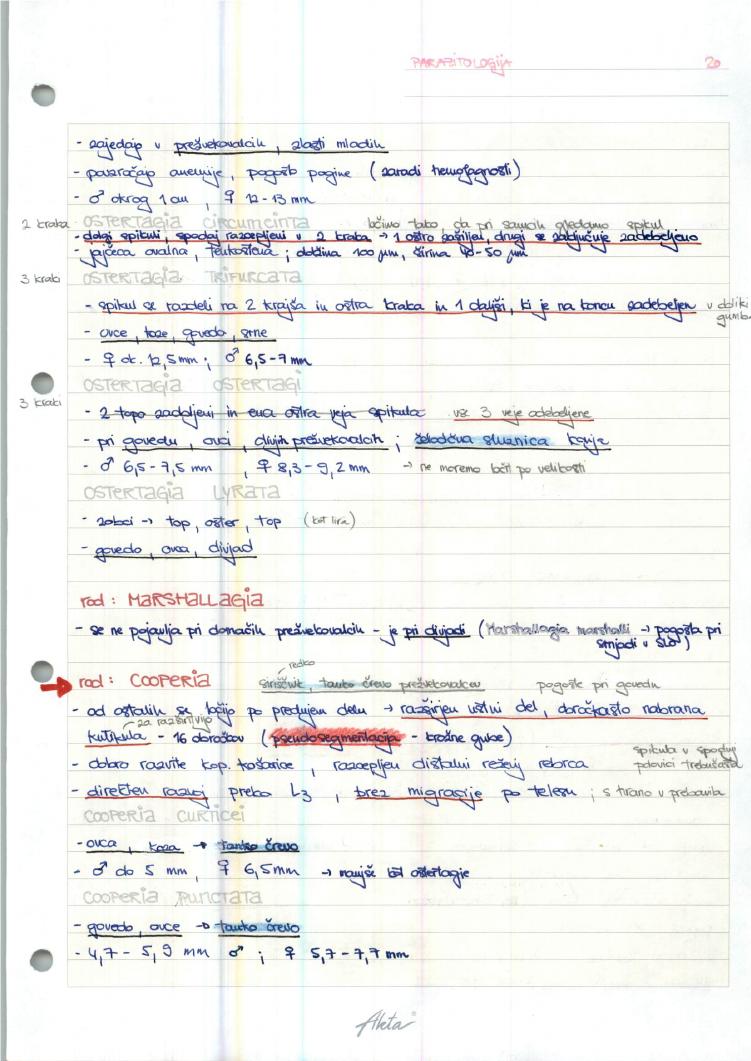 PARAZITOLOGIJA 20
- zajedajo v prežvekovalcih, zlasti mladih
- povzročajo anemije, pogosto pogine (zaradi hemofagnosti)
- ♂ okrog 1 cm, ♀ 12-13 mm
2 kraka OSTERTAGIA CIRCUMCINTA ločimo tako, da pri samcih gledamo spikul
- dolgi spikuli, spodaj razcepljeni v 2 kraka → 1 ostro zašiljen, drugi se zaključuje zadebeljeno
- jajčeca ovalna, tenkostena; dolžina 100 µm, širina 40-50 µm
3 kraki OSTERTAGIA TRIFURCATA
- spikul se razdeli na 2 krajša in ostra kraka in 1 daljši, ki je na koncu zadebeljen v obliki
gumba
- ovce, koze, govedo, srne
- ♀ ok. 12,5 mm; ♂ 6,5-7 mm
OSTERTAGIA OSTERTAGI
3 kraki
- 2 topo zadebljeni in ena ostra veja spikula vse 3 veje odebeljene
- pri govedu, ovci, divjih prežvekovalcih; želodčna sluznica
- ♂ 6,5-7,5 mm, ♀ 8,3-9,2 mm → ne moremo ločiti po velikosti
OSTERTAGIA LYRATA
- zobci → top, oster, top (kot lira)
- govedo, ovca, divjad
rod: MARSHALLAGIA
- se ne pojavlja pri domačih prežvekovalcih - je pri divjadi (Marshallagia marshalli → pogosta pri
srnjadi v SLO)
redko
rod: COOPERIA siriščnik, tanko črevo prežvekovalcev pogoste pri govedu
- od ostalih se ločijo po prednjem delu → razširjen ustni del, obročkasto nabrana
za razširitvijo
kutikula - 16 obročkov (pseudosegmentacija - krožne gube)
- dobro razvite kop. košarice, razcepljen distalni reženj rebrca spikula v spodnji
polovici trebušasta
- direkten razvoj preko L3, brez migracije po telesu; s hrano v prebavila
COOPERIA CURTICEI
- ovca, koza → tanko črevo
- ♂ do 5 mm, ♀ 6,5 mm → manjše kot ostertagie
COOPERIA PUNCTATA
- govedo, ovce → tanko črevo
- 4,7-5,9 mm ♂; ♀ 5,7-7,7 mm
Akta